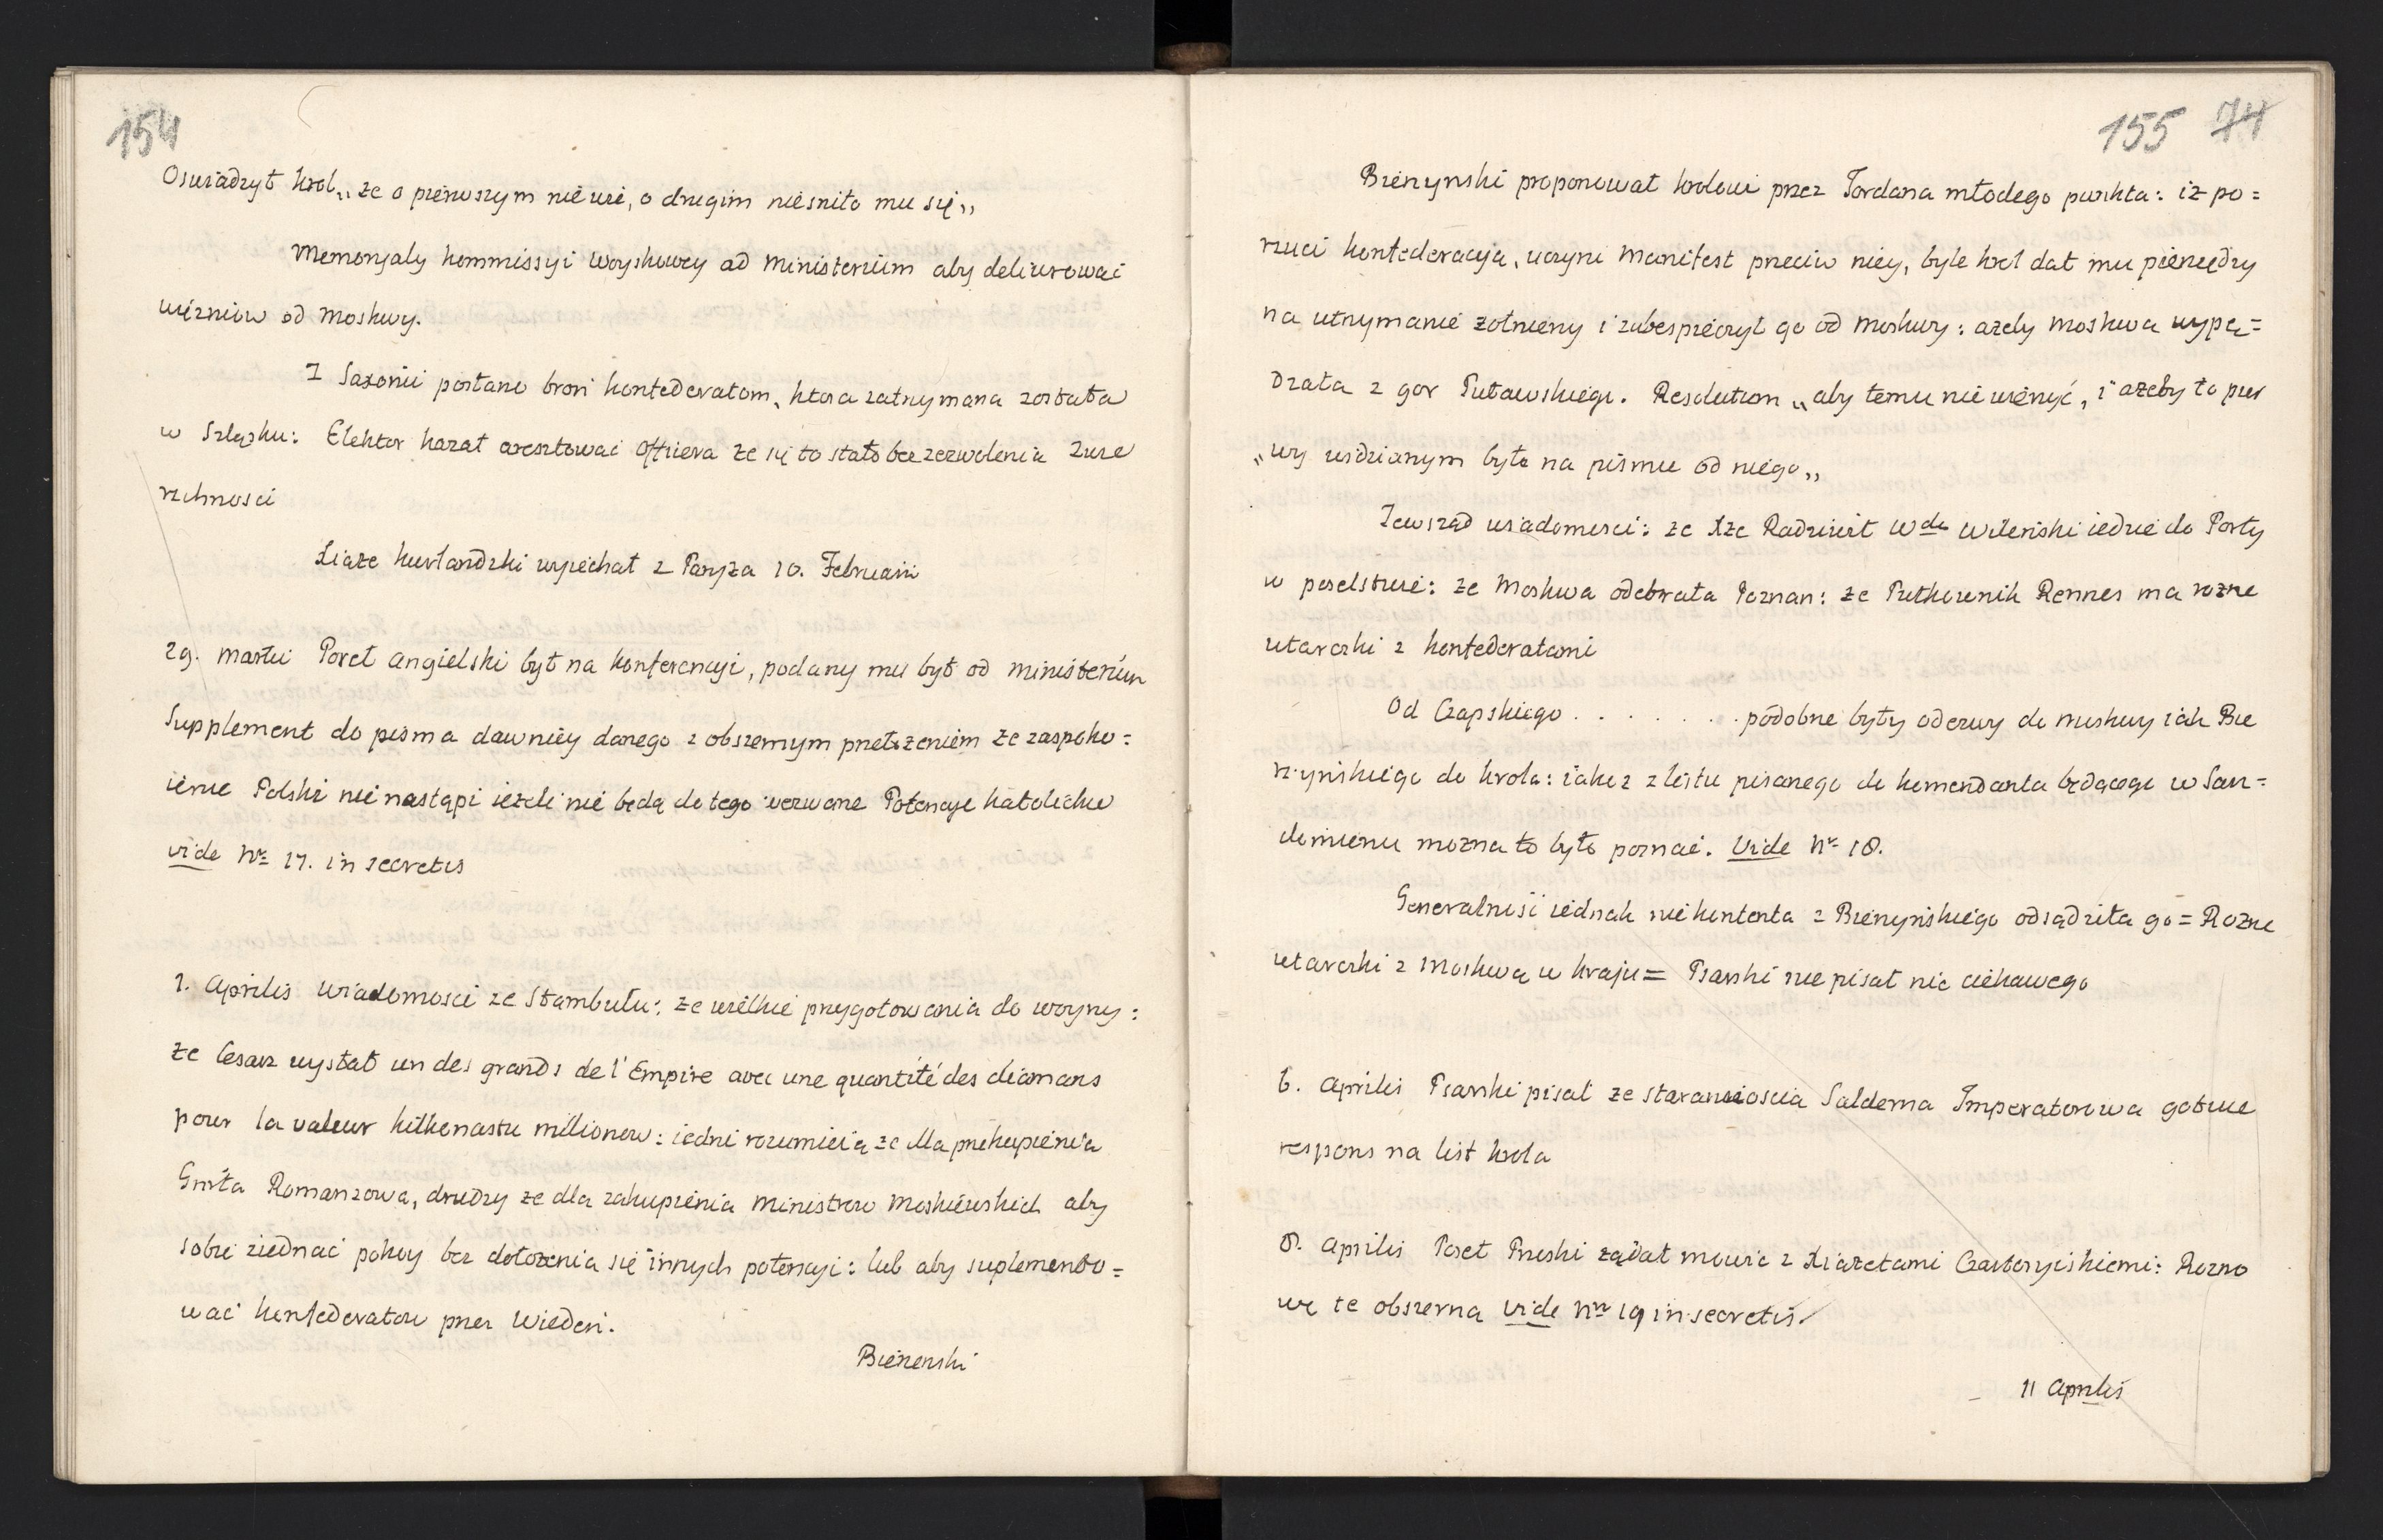 154
Oswiadzył krol „ ze o pierwszym nie wie, o drugim nie sniło mu się „
Memoryały kommissyi woyskowey ad Ministerium aby deliurować
więzniów od Moskwy.
Z Saxonii posłano broń konfederatom, ktora zatrzymana została
w Szląsku: Elektor kazał aresztować officiera że się to stało bez zezwolenia Zwie
rzchności
Xiaże kurlandzki wyiechał z Paryża 10. Februarii
29. Martii Poseł Angielski był na konferencyi, podany mu był od ministerium
Supplement do pisma dawniey danego z obszernym przełożeniem że zaspoko=
ienie Polski nie nastąpi ieżeli nie będą do tego wezwane Potencye katolickie
vide Nro 17. in secretis
1. Aprilis wiadomosci ze Stambułu: że wielkie przygotowania do woyny:
że Cesarz wysłał un des grands de l'Empire avec une quantité des diamans
pour la valeur kilkenastu milionow: iedni rozumieią że dla przekupienia
Gnrła Romanzowa, drudzy że dla zakupienia ministrow Moskiewskich aby
sobie ziednać pokoy bez dołożenia się innych potencyi: lub aby suplemento=
wać konfederatow przez Wiedeń.
Bierzenski
155 74
Bierzynski proponował krolowi przez Jordana młodego punkta: iż po=
rzuci konfederacya, uczyni Manifest przeciw niey, byle krol dał mu pieniędzy
na utrzymanie żołnierzy i zabespieczył go od Moskwy: azeby Moskwa wypę=
dzała z gor Puławskiego. Resolutum „ aby temu nie wierzyć, i ażeby to pier
„ wy widzianym było na pismie od niego „
Zewsząd wiadomosci: że Xże Radziwił Wda Wileński iedzie do Porty
w poselstwie: że Moskwa odebrała Poznan: że Pułkownik Rennes ma rożne
utarczki z konfederatami
Od Czapskiego . . . . . . . . podobne były odezwy do Moskwy iak Bie
rzyńskiego do krola: iakoż z listu pisanego do komendanta będącego w San=
domierzu można to było poznać. Vide Nr 18.
Generalność iednak niekontenta z Bierzyńskiego odsądziła go = Rożne
utarczki z Moskwą w kraju = Psarski nie pisał nic ciekawego
6. Aprilis Psarski pisał że staraniością Salderna Imperatorowa gotuie
respons na list krola
8. Aprilis Poseł Pruski żądał mowić z Xiażetami Czartoryiskiemi: Rozmo
wę te obszerna vide Nro 19 in secretis.
11 Aprilis